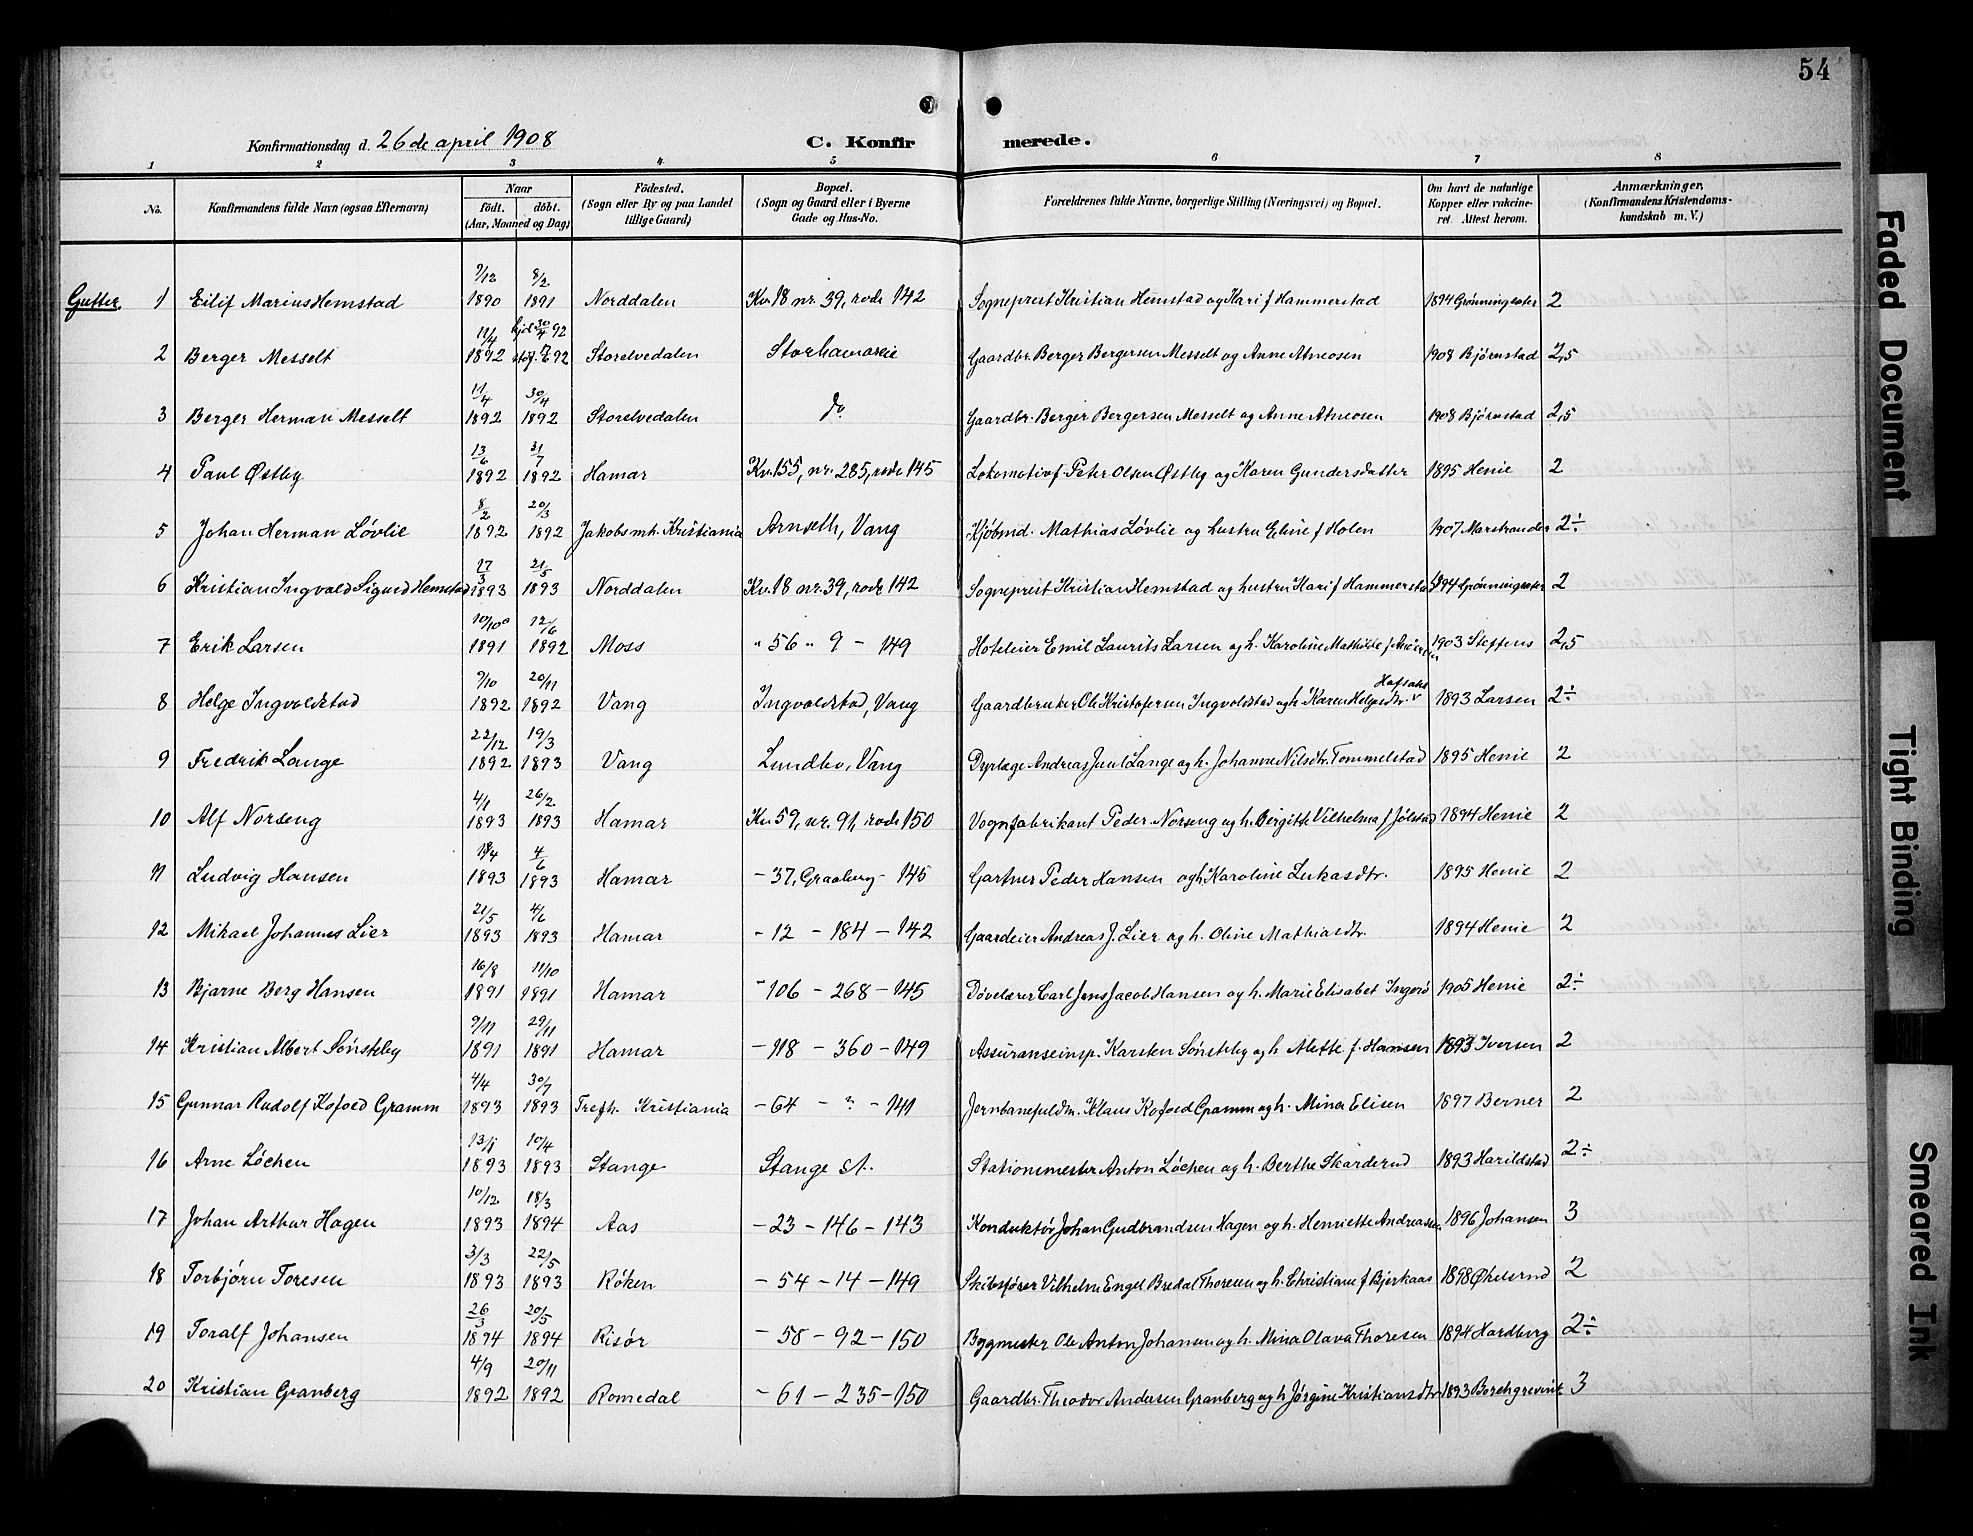 54
Konfirmationsdag d. 26de april 1908 C. Konfirmerede.
1 2 3 4 5 6 7 8
No. Konfirmandens fulde Navn (ogsaa Efternavn) Naar födt. döbt. (Aar, Maaned og Dag) Födested. (Sogn eller By og paa Landet tillige Gaard) Bopæl. (Sogn og Gaard eller i Byerne Gade og Hus-No. Forældrenes fulde Navne, borgerlige Stilling (Næringsvei) og Bopæl. Om havt de naturlige Kopper eller vakcineret. Attest herom. Anmærkninger, (Konfirmandens Kristendomskundskab m. V.)
Gutter. 1 Eilif Marius Hemstad 9/12 1890 8/2 1891 Norddalen Kv. 18 nr. 39, rode 142 Sogneprest Kristian Hemstad og Kari f Hammerstad 1894 Grønningsæter 2
2 Berger Messelt 11/4 1892 hjd. 30/4 92 Storelvedalen Storhamareie Gaardbr. Berger Bergersen Messelt og Anne Atneosen 1908 Bjørnstad 2,5
3 Berger Herman Messelt 11/4 1892 30/4 1892 Storelvedalen do Gaardbr. Berger Bergersen Messelt og Anne Atneosen 1908 Bjørnstad 2,5
4 Paul Østby 13/6 1892 31/7 1892 Hamar Kv. 155, nr. 285, rode 145 Lokomotivf. Peter Olsen Østby og Karen Gundersdatter 1895 Henie 2
5 Johan Herman Løvlie 8/2 1892 20/3 1892 Jakobs mh. Kristiania Arnseth, Vang Kjøbmd. Mathias Løvlie og hustru Eline f Holen 1907 Marstrander 2÷
6 Kristian Ingvald Sigurd Hemstad 27/3 1893 21/5 1893 Norddalen Kv. 18 nr. 39, rode 142 Sogneprest Kristian Hemstad og hustru Kari f Hammerstad 1894 Grønningsæter 2
7 Erik Larsen 10/10 1891 12/6 1892 Moss " 56 " 9 - 149 Hoteleier Emil Laurits Larsen og h. Karoline Mathilde f. 1903 Steffens 2,5
8 Helge Ingvoldstad 9/10 1892 20/11 1892 Vang Ingvoldstad, Vang Gaardbruker Ole Kristofersen Ingvoldstad og h. Karen Helgesdtr. 1893 Larsen 2÷
9 Fredrik Lange 22/12 1892 19/3 1893 Vang Lundbo, Vang Dyrlæge Andreas Juul Lange og h. Johanne Nilsdtr. Tommelstad 1895 Henie 2
10 Alf Norseng 4/1 1893 26/2 1893 Hamar Kv 59, nr. 91, rode 150 Vognfabrikant Peder Norseng og h. Bergitte Vilhelma f Jølstad 1894 Henie 2
11 Ludvig Hansen 1893 4/6 1893 Hamar - 37, Graaberg - 145 Gartner Peder Hansen og h Karoline Lukasdtr. 1895 Henie 2
12 Mikael Johannes Lier 21/5 1893 4/6 1893 Hamar - 12 - 184 - 142 Gaardeier Andreas J. Lier og h. Oline Mathiasdtr. 1894 Henie 2
13 Bjarne Berg Hansen 16/8 1891 11/10 1891 Hamar - 106 - 268 - 145 Døvelærer Carl Jens Jacob Hansen og h. Marie Elisabet Ingerø 1905 Henie 2÷
14 Kristian Albert Sønsteby 9/11 1891 29/11 1891 Hamar - 118 - 360 - 149 Assuranseinsp. Karsten Sønsteby og h Alette f. Hansen 1893 Iversen 2
15 Gunnar Rudolf Kofoed Gramm 4/4 1893 30/7 1893 Trefh. Kristiania - 64 - ? - 141 Jernbanefuldm. Klaus Kofoed Gramm og h. Mina Elisen 1897 Berner 2
16 Arne Løchen 13/1 1893 10/4 1893 Stange Stange st. Stationsmester Anton Løchen og h. Berthe Skarderud 1893 Harildstad 2÷
17 Johan Arthur Hagen 10/12 1893 18/3 1894 Aas - 23 - 146 - 143 Konduktør Johan Gudbrandsen Hagen og h. Henriette Andreasen 1896 Johansen 3
18 Torbjørn Toresen 3/3 1893 22/5 1893 Røken - 54 - 14 - 149 Skibsfører Vilhelm Engel Bredal Thoresen og h. Christiane f Bjerkaas 1898 Økelsrud 2
19 Toralf Johansen 26/3 1894 20/5 1894 Risør - 58 - 92 - 150 Bygmester Ole Anton Johansen og h. Mina Olava Thoresen 1894 Hardberg 2÷
20 Kristian Granberg 4/9 1892 20/11 1892 Romedal - 61 - 235 - 150 Gaardbr. Theodor Andersen Granberg og h Jørgine Kristiansdtr 1893 Borchgrevink 3
Faded Document
Tight Binding
Smeared Ink